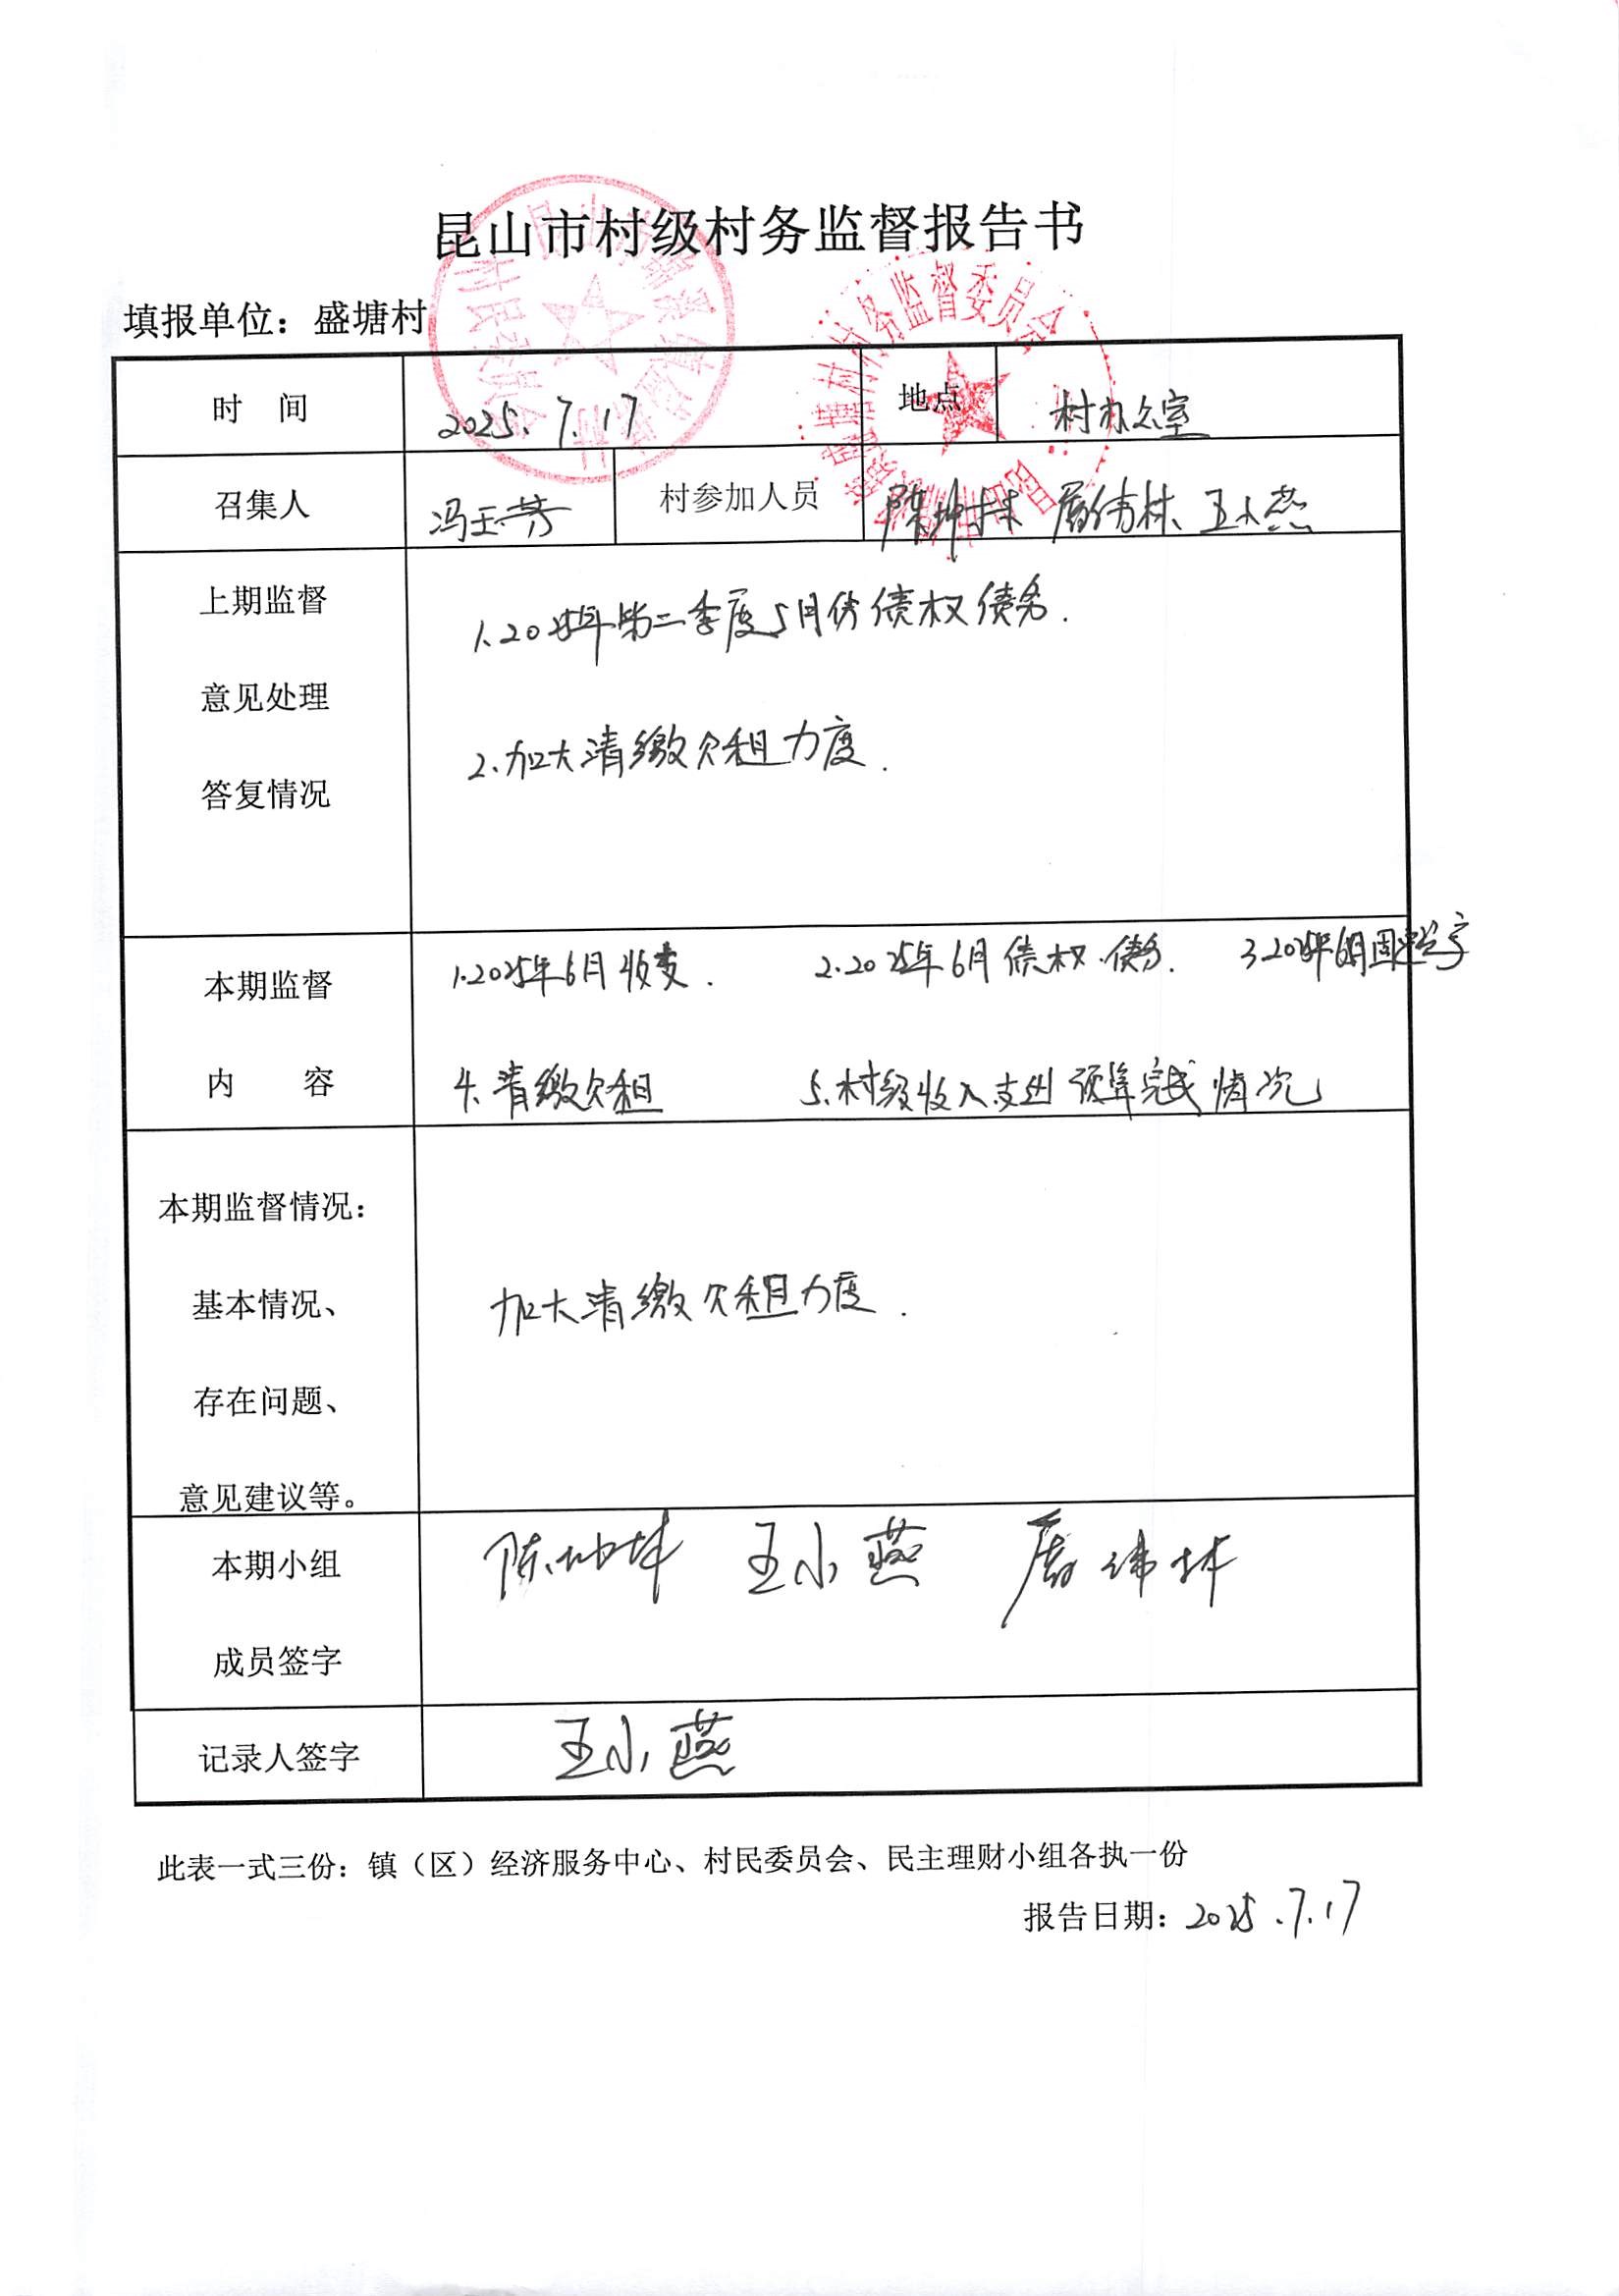 昆山市村级村务监督报告书
填报单位：盛塘村
时 间 2025.7.17 地点 村办公室
召集人 冯玉芳 村参加人员 陈坤林 王小燕
上期监督
意见处理
答复情况
1.2025年第二季度5月份债权债务.
2.加大清缴欠租力度.
本期监督
内 容
1.2025年6月收支. 2.2025年6月债权.债务. 3.2025年6月固定资产
4.清缴欠租 5.村级收入支出预算完成情况
本期监督情况：
基本情况、
存在问题、
意见建议等。
加大清缴欠租力度.
本期小组
成员签字
王小燕
记录人签字 王小燕
此表一式三份：镇（区）经济服务中心、村民委员会、民主理财小组各执一份
报告日期：2025.7.17
村务监督委员会
村民委员会